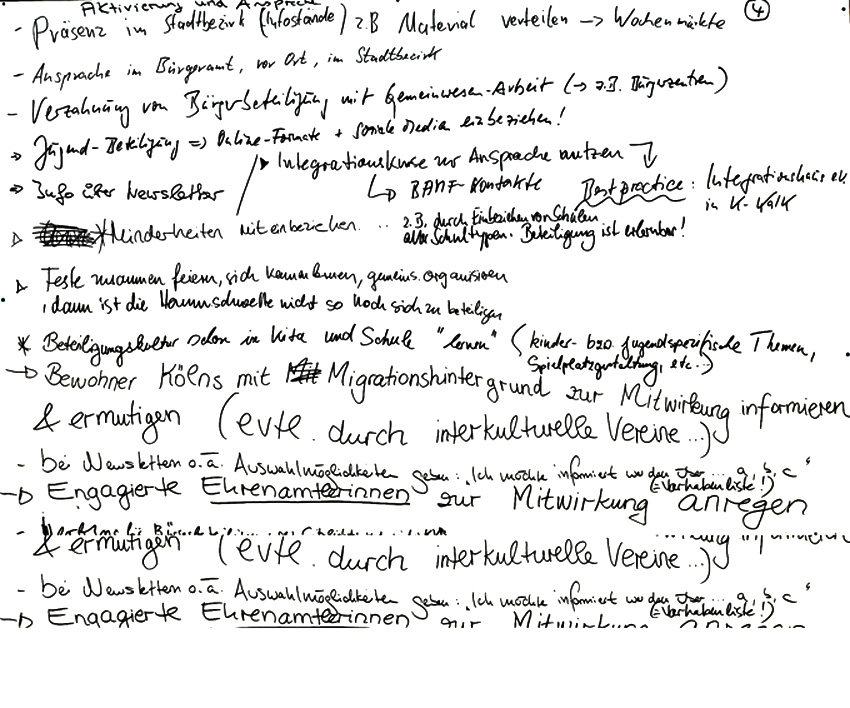 Aktivierung und Ansprache
④
- Präsenz im Stadtbezirk (Infostände) z.B Material verteilen → Wochenmärkte
- Ansprache im Bürgeramt, vor Ort, im Stadtbezirk
- Verzahnung von Bürgerbeteiligung mit Gemeinwesen-Arbeit (→ z.B. Bürgerzentren)
→ Jugend-Beteiligung => Online-Formate + soziale Media einbeziehen!
Integrationskurse zur Ansprache nutzen
→ Info über Newsletter
BAMF Kontakte
Best practice: Integrationshaus e.V.
in K-Kalk
Minderheiten miteinbeziehen ..
z.B. durch Einbeziehen von Schulen
aller Schultypen. Beteiligung ist erlernbar!
Feste zusammen feiern, sich kennenlernen, gemeins. organisieren
, dann ist die Hemmschwelle nicht so hoch sich zu beteiligen
* Beteiligungskultur schon in Kita und Schule "lernen" (kinder- bzw. jugendspezifische Themen,
Spielplatzgestaltung, etc...)
→ Bewohner Kölns mit Migrationshintergrund zur Mitwirkung informieren
& ermutigen (evtl. durch interkulturelle Vereine...)
- bei Newslettern o.ä. Auswahlmöglichkeiten geben: "Ich möchte informiert werden über ... a, b, c"
(= Vorhabenliste!)
→ Engagierte Ehrenamtlerinnen zur Mitwirkung anregen
& ermutigen (evtl. durch interkulturelle Vereine...)
- bei Newslettern o.ä. Auswahlmöglichkeiten geben: "Ich möchte informiert werden über ... a, b, c"
(= Vorhabenliste!)
→ Engagierte Ehrenamtlerinnen zur Mitwirkung anregen